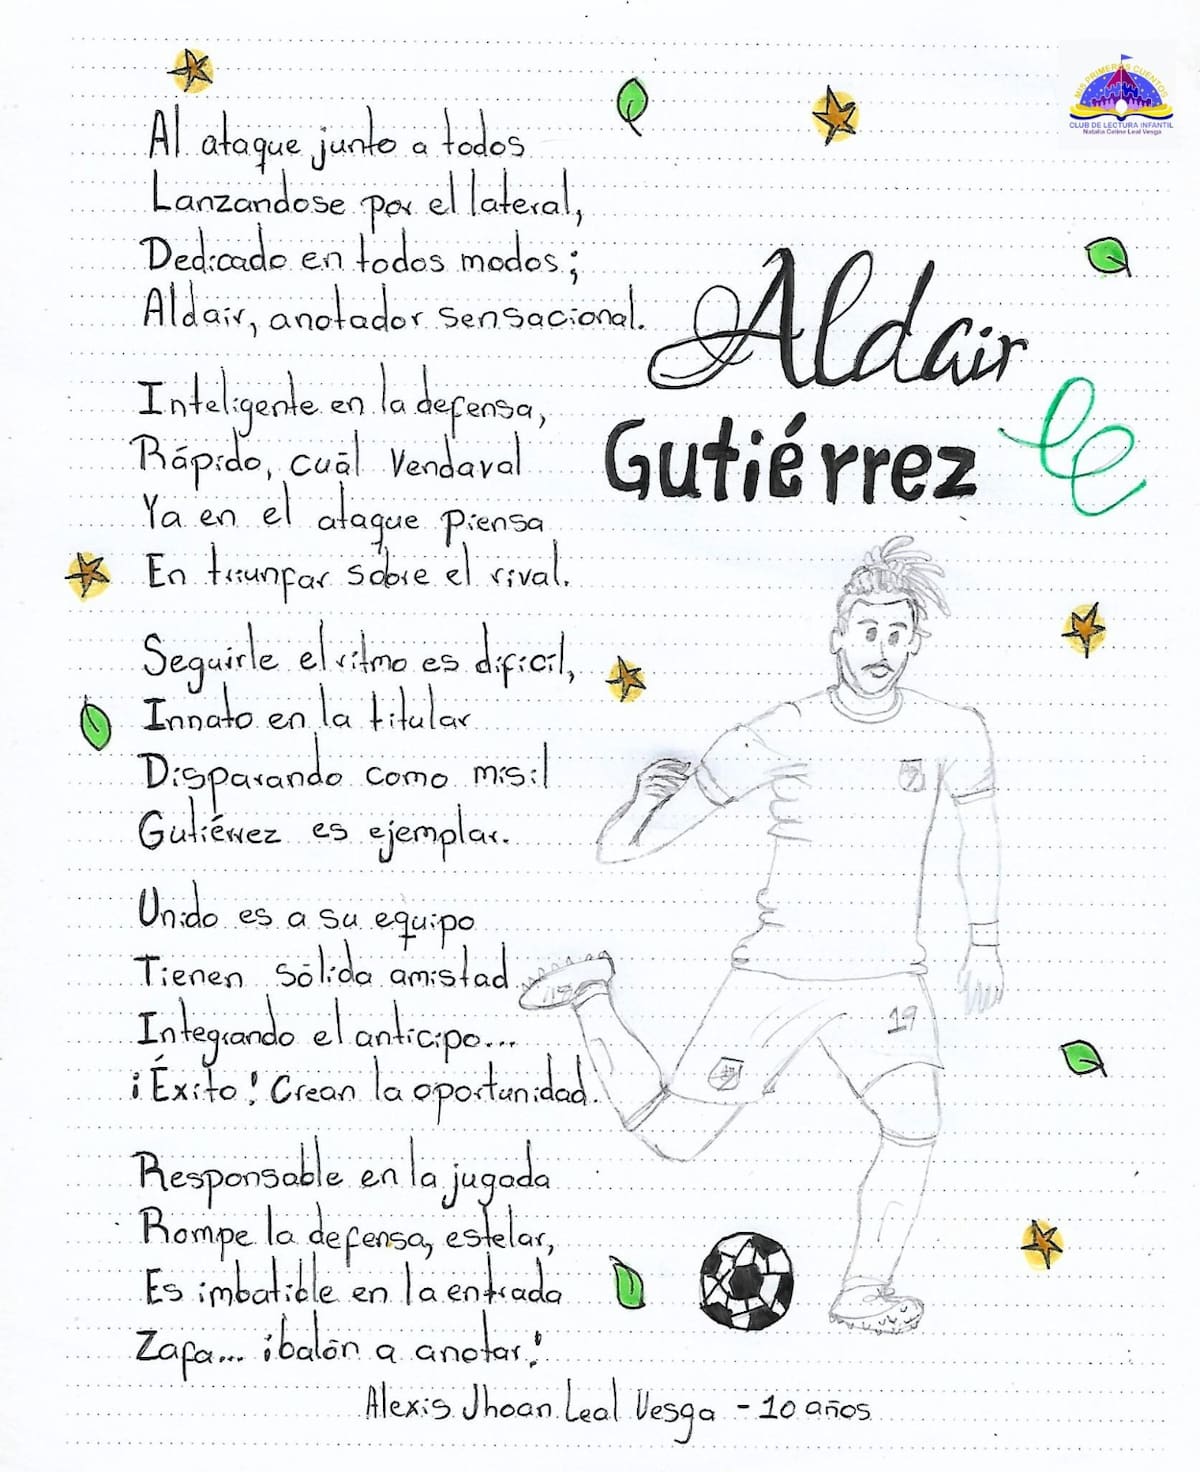 MIS PRIMEROS CUENTOS
CLUB DE LECTURA INFANTIL
Natalia Celine Leal Vesga
Aldair
Gutiérrez
Al ataque junto a todos
Lanzandose por el lateral,
Dedicado en todos modos;
Aldair, anotador sensacional.
Inteligente en la defensa,
Rápido, cuál vendaval
Ya en el ataque piensa
En triunfar sobre el rival.
Seguirle el ritmo es difícil,
Innato en la titular
Disparando como misil
Gutiérrez es ejemplar.
Unido es a su equipo
Tienen sólida amistad
Integrando el anticipo...
¡Éxito! Crean la oportunidad.
Responsable en la jugada
Rompe la defensa, estelar,
Es imbatible en la entrada
Zafa... ¡balón a anotar!
19
Alexis Jhoan Leal Vesga - 10 años